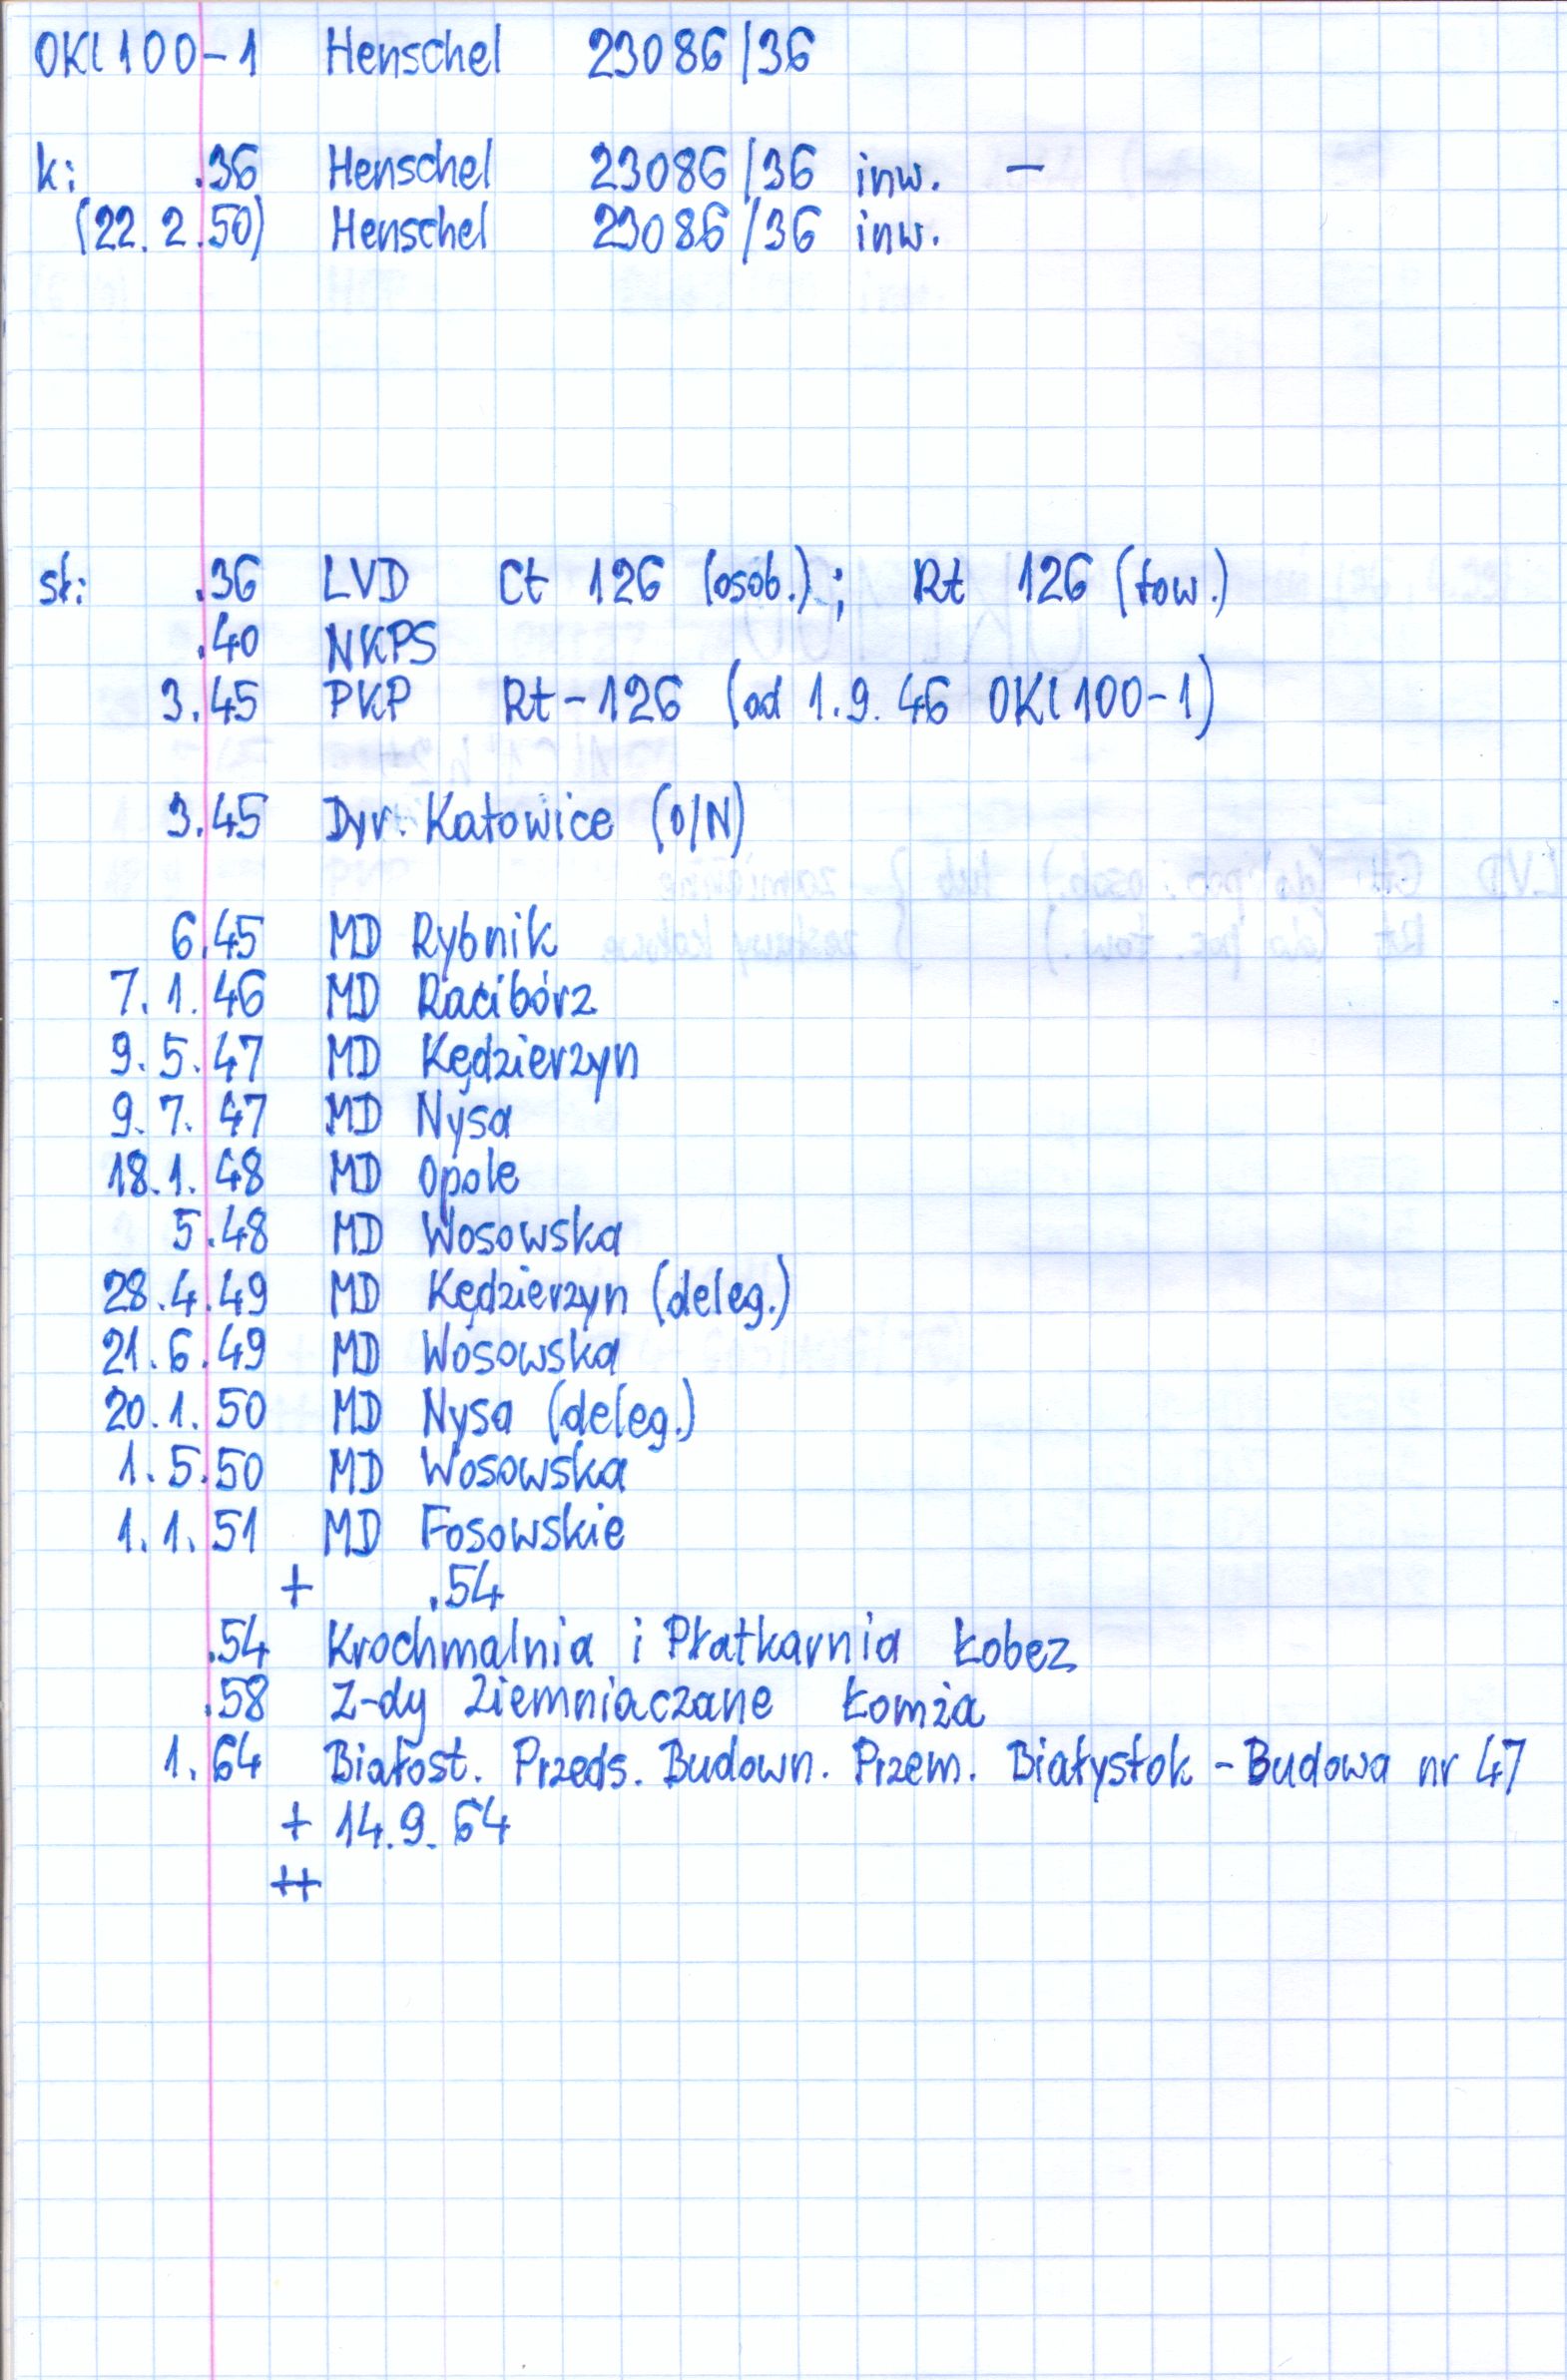 OKl100-1 Henschel 23086/36
k: .36 Henschel 23086/36 inw. —
(22.2.50) Henschel 23086/36 inw.
st: .36 LVD Ct 126 (osob.); Rt 126 (tow.)
.40 NKPS
3.45 PKP Rt-126 (od 1.9.46 OKl100-1)
3.45 Dyr. Katowice (O/N)
6.45 MD Rybnik
7.1.46 MD Racibórz
9.5.47 MD Kędzierzyn
9.7.47 MD Nysa
18.1.48 MD Opole
5.48 MD Wosowska
28.4.49 MD Kędzierzyn (deleg.)
21.6.49 MD Wosowska
20.1.50 MD Nysa (deleg.)
1.5.50 MD Wosowska
1.1.51 MD Fosowskie
+ .54
.54 Krochmalnia i Płatkarnia Łobez
.58 Z-dy Ziemniaczane Łomża
1.64 Białost. Przeds. Budown. Przem. Białystok - Budowa nr 47
+ 14.9.64
++